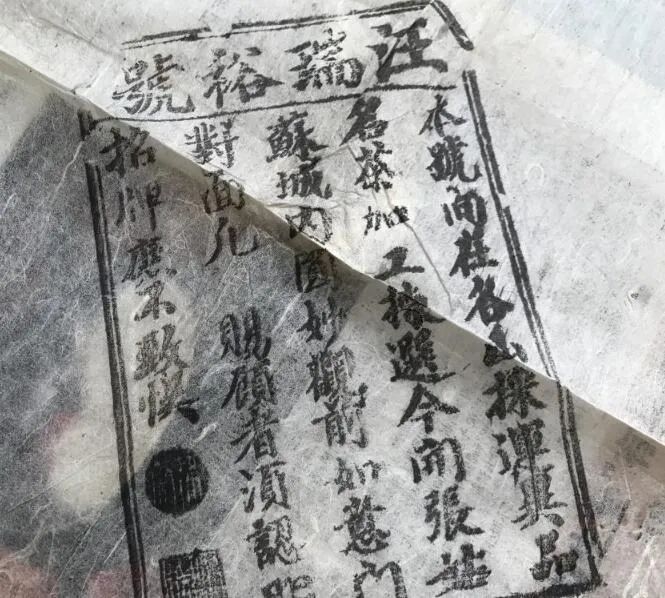 汪瑞裕號
本號向往各山採運真品
名茶加工揀選今開張
蘇城內圓妙觀前如意門
對面凡 賜顧者須認明
招牌庶不致悞